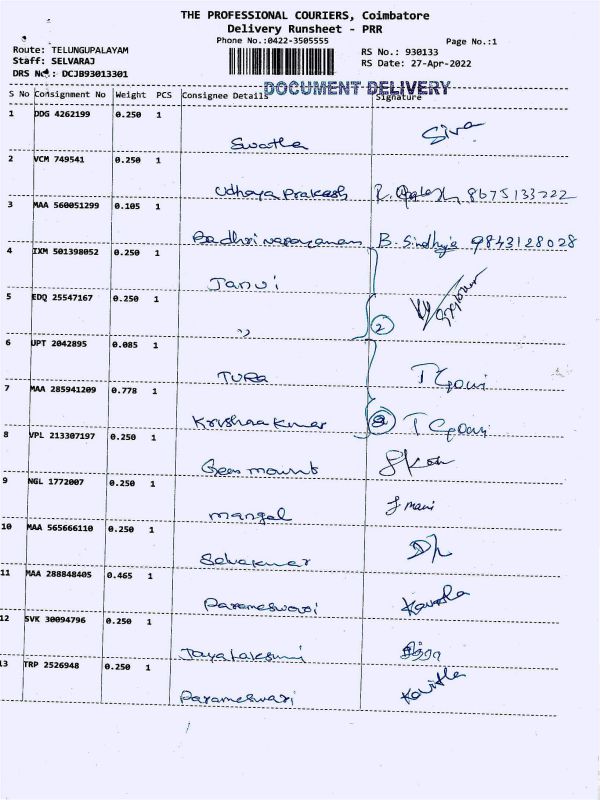 THE PROFESSIONAL COURIERS, Coimbatore
Delivery Runsheet - PRR
Phone No.:0422-3505555
Page No.:1
Route: TELUNGUPALAYAM
Staff: SELVARAJ
DRS No.: DCJB93013301
RS No.: 930133
RS Date: 27-Apr-2022
DOCUMENT DELIVERY
S No Consignment No Weight PCS Consignee Details Signature
1 DDG 4262199 0.250 1
Swatha Siva
2 VCM 749541 0.250 1
Udhaya Prakash 8675133222
3 MAA 560051299 0.105 1
Badhri narayanan B. Sindhuja 9843128028
4 IXM 501398052 0.250 1
Janvi
5 EDQ 25547167 0.250 1
" 2
6 UPT 2042895 0.085 1
TURA T Gowri
7 MAA 285941209 0.778 1
Krishna Kumar T Gowri
8 VPL 213307197 0.250 1
Green mount
9 NGL 1772007 0.250 1
mangal J mani
10 MAA 565666110 0.250 1
Selvakumar
11 MAA 288848405 0.465 1
Parameswari Kavitha
12 SVK 30094796 0.250 1
Jayalakshmi
13 TRP 2526948 0.250 1
Parameswari Kavitha